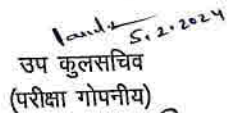 5.2.2024
उप कुलसचिव
(परीक्षा गोपनीय)